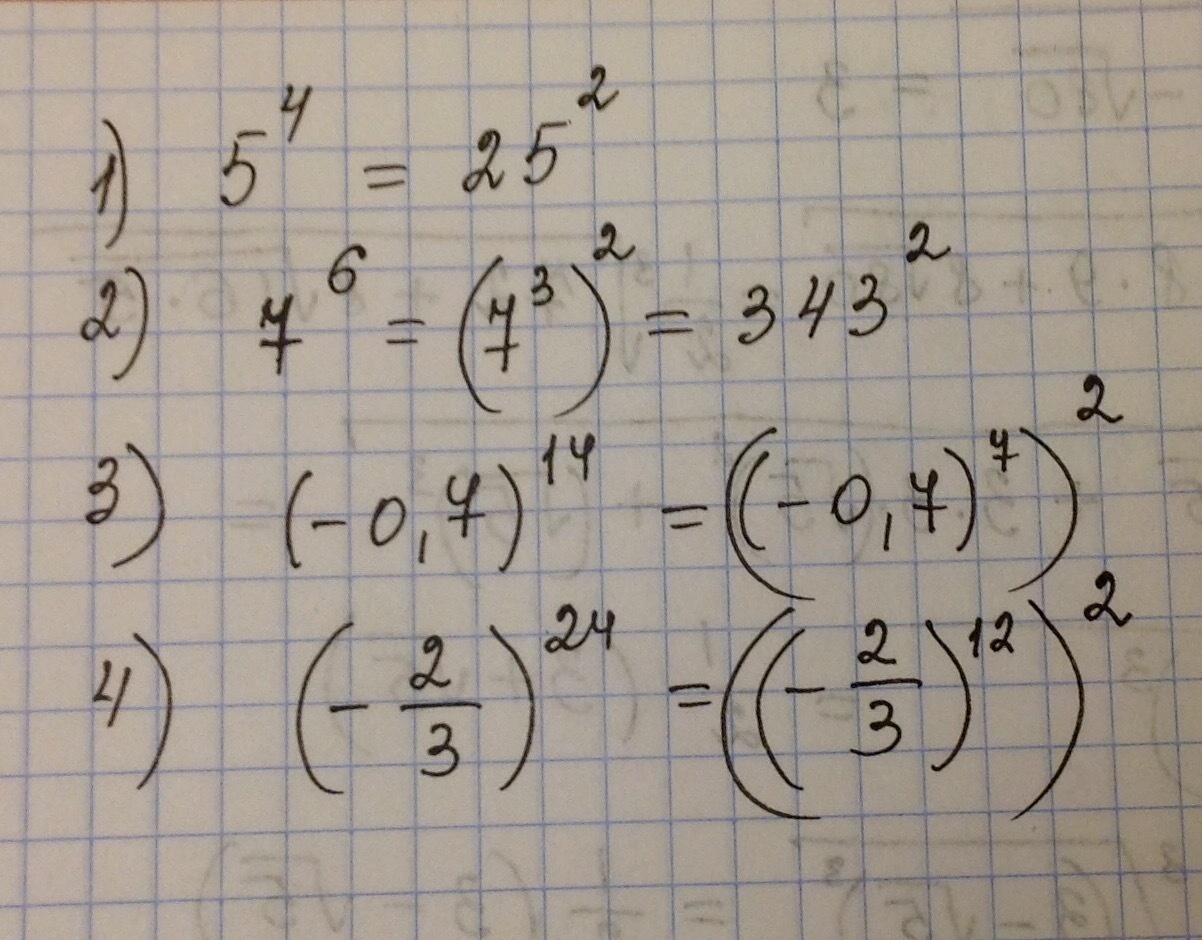 1) 5⁴ = 25²
2) 7⁶ = (7³)² = 343²
3) (-0,7)¹⁴ = ((-0,7)⁷)²
4) (-2/3)²⁴ = ((-2/3)¹²)²